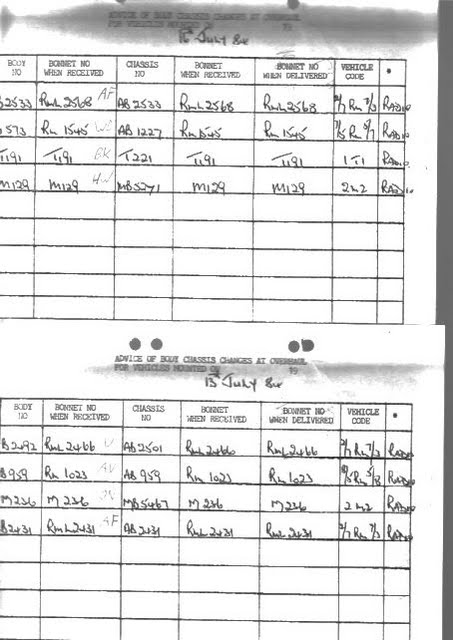 ADVICE OF BODY CHASSIS CHANGES AT OVERHAUL
FOR VEHICLES MOUNTED ON 19
16th July 84
BODY NO BONNET NO WHEN RECEIVED CHASSIS NO BONNET WHEN RECEIVED BONNET NO WHEN DELIVERED VEHICLE CODE *
B2533 RmL2568 AF AB2533 RmL2568 RmL2568 2/7 Rm 7/3 RADIO
573 Rm 1545 AB1227 Rm1545 Rm 1545 RADIO
T191 T191 BK T221 T191 T191 1T1 RADIO
M129 M129 HW MB5271 M129 M129 2m2 RADIO
ADVICE OF BODY CHASSIS CHANGES AT OVERHAUL
FOR VEHICLES MOUNTED ON 19
13th July 84
BODY NO BONNET NO WHEN RECEIVED CHASSIS NO BONNET WHEN RECEIVED BONNET NO WHEN DELIVERED VEHICLE CODE *
B2492 RmL2466 AB2501 RmL2466 RmL2466 2/7 Rm 7/3 RADIO
B959 Rm 1023 AV AB959 Rm 1023 Rm 1023 RADIO
M236 M 236 MB5467 M 236 M 236 2 m2 RADIO
B2431 RmL2431 AF AB2431 RmL2431 RmL2431 2/7 Rm 7/3 RADIO